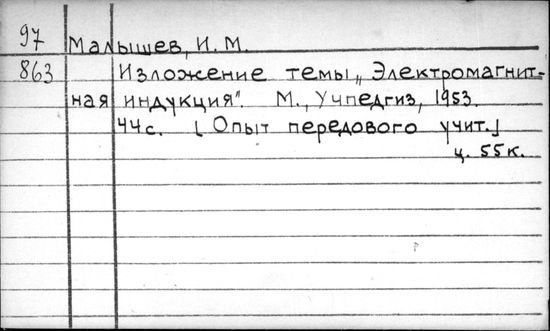 97
Малышев, И. М.
863
Изложение темы „Электромагнит-
ная индукция". М., Учпедгиз, 1953.
44 с. [Опыт передового учит.]
ц. 55 к.